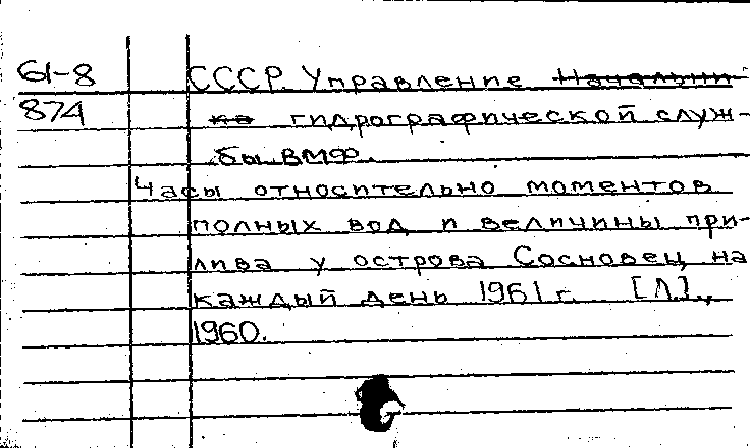 61-8 СССР. Управление Начальни-
874 ка гидрографической служ-
бы ВМФ.
Часы относительно моментов
полных вод и величины при-
лива у острова Сосновец на
каждый день 1961 г. [Л.],
1960.